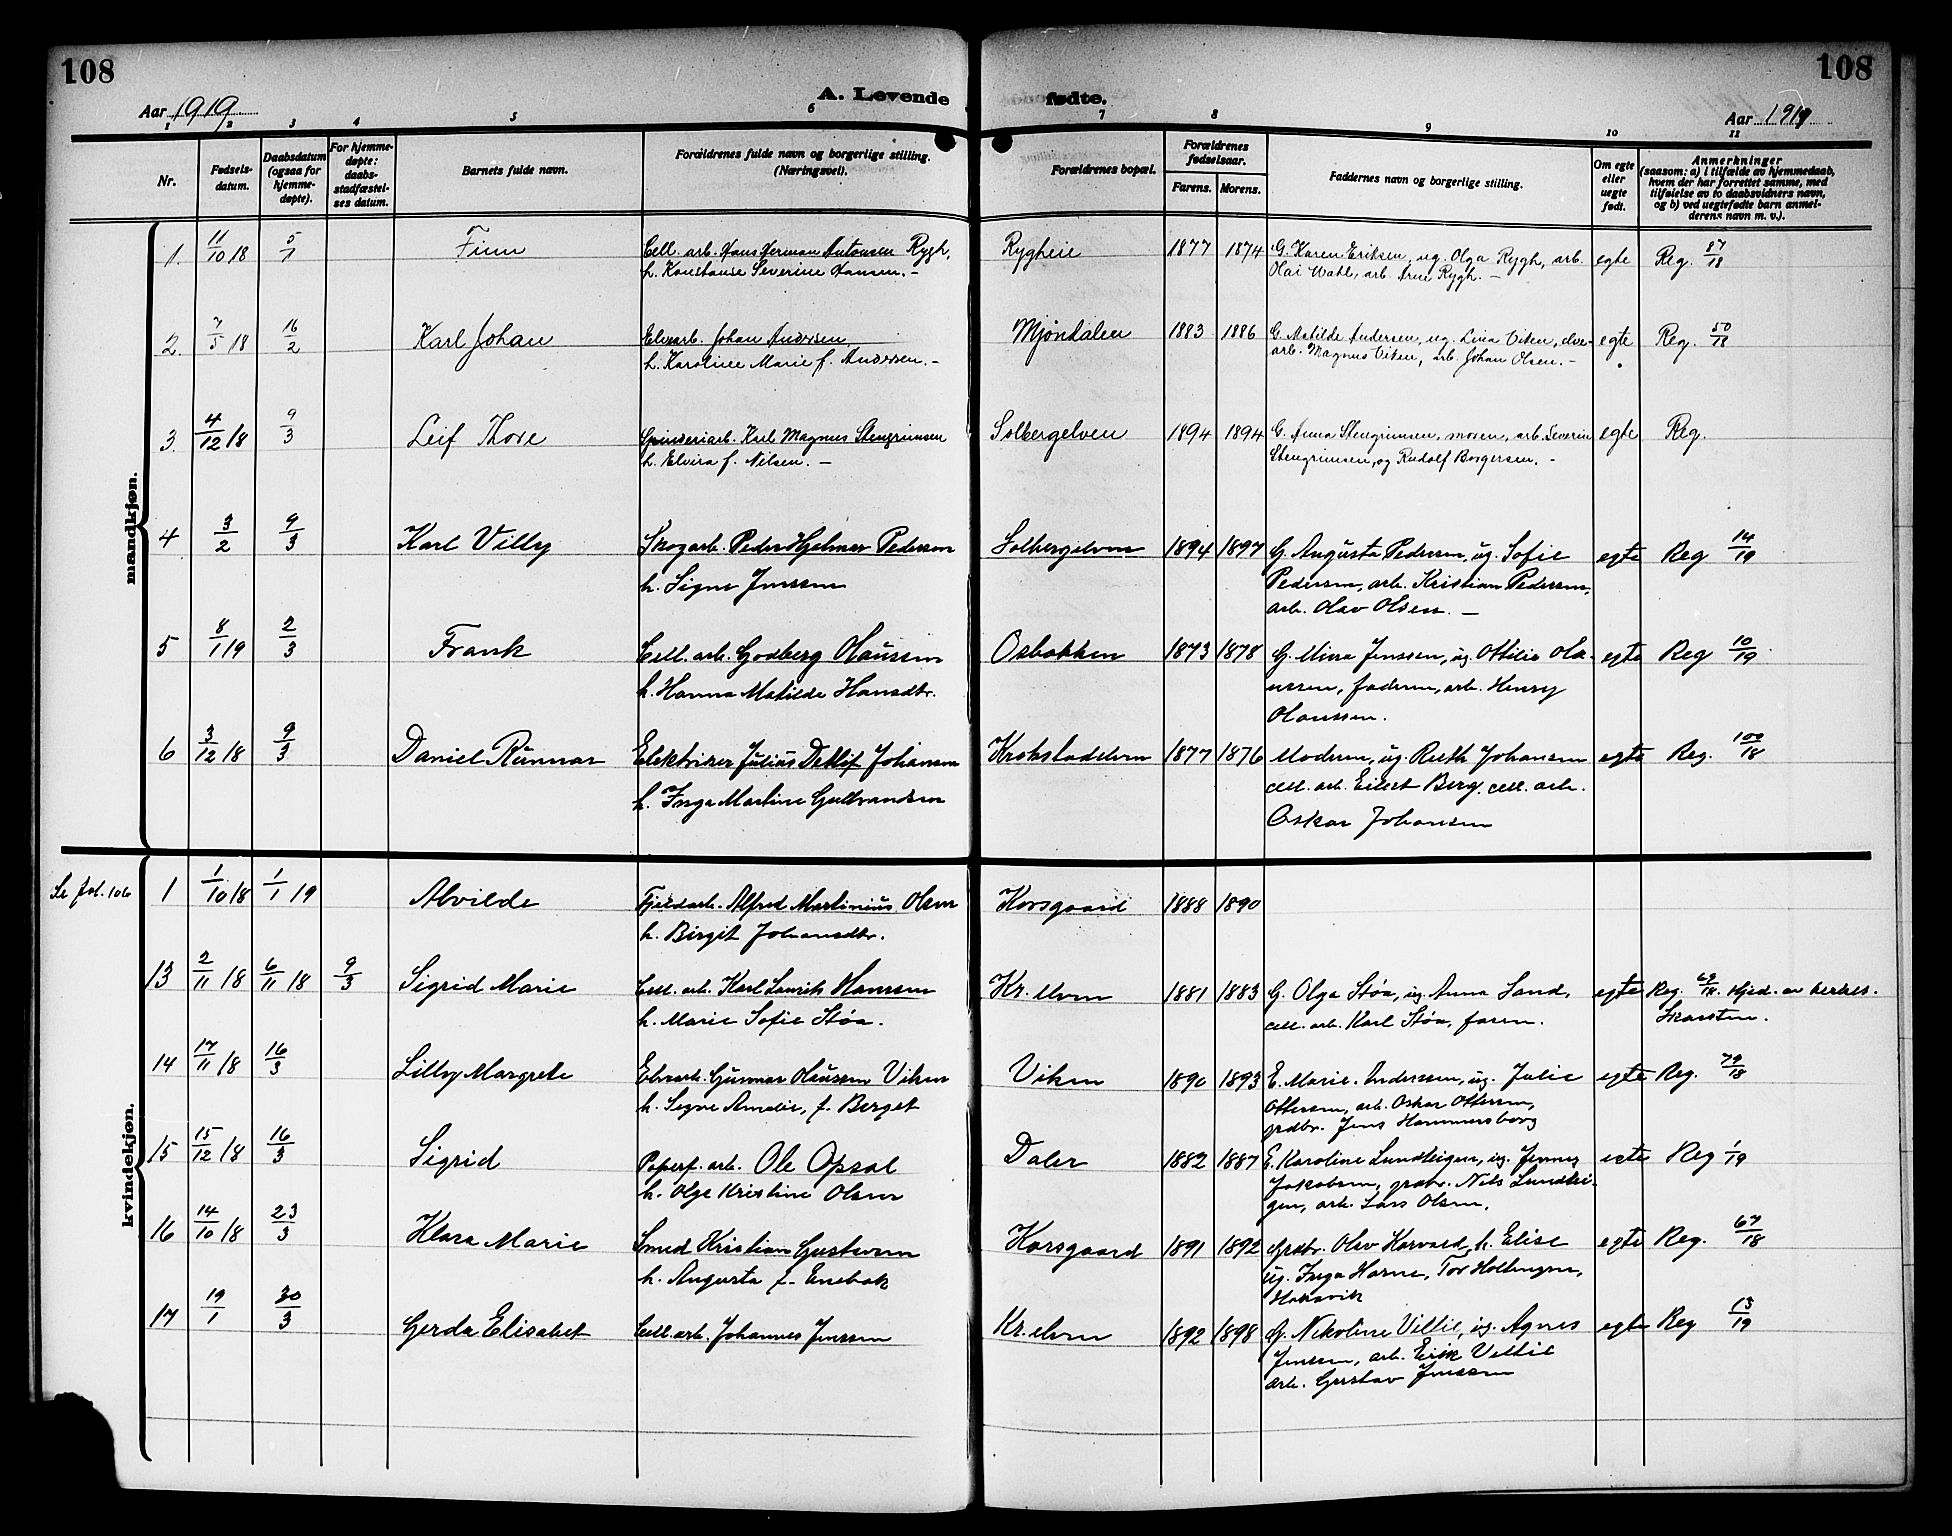 108
108
Aar 1919
A. Levende fødte.
Aar 1919
1 2 3 4 5 6 7 8 9 10 11
Nr.
Fødsels-
datum.
Daabsdatum
(ogsaa for
hjemme-
døpte).
For hjemme-
døpte:
daabs-
stadfæstel-
ses datum.
Barnets fulde navn.
Forældrenes fulde navn og borgerlige stilling.
(Næringsvei).
Forældrenes bopæl.
Forældrenes
fødselsaar.
Farens. Morens.
Faddernes navn og borgerlige stilling.
Om egte
eller
uegte
født.
Anmerkninger
(saasom: a) i tilfælde av hjemmedaab,
hvem der har forrettet samme, med
tilføielse av to daabsvidners navn,
og b) ved uegtefødte barn anmel-
derens navn m. v.).
mandkjøn.
1. 11/10 18 5/1 Finn Cell. arb. Hans Herman Antonsen Rygh, Rygheie 1877 1874 G. Karen Eriksen, ug. Olga Rygh, arb. egte Reg. 87/18
h. Konstanse Severine Hansen. – Olai Wahl, arb. Arne Rygh. –
2. 7/5 18 16/2 Karl Johan Elvearb. Johan Andersen Mjøndalen 1883 1886 G. Matilde Andersen, ug. Lina Viken, elve- egte Reg. 50/18
h. Karoline Marie f. Andersen. – arb. Magnus Viken, arb. Johan Olsen. –
3. 4/12 18 9/3 Leif Thore Spinderiarb. Karl Magnus Stengrimsen Solbergelven 1894 1894 G. Anna Stengrimsen, moren, arb. Severin egte Reg.
h. Elvira f. Nilsen. – Stengrimsen, og Rudolf Borgersen. –
4 3/2 9/3 Karl Villy Skogarb. Peder Hjelmer Pedersen Solbergelven 1894 1897 G. Augusta Pedersen, ug. Sofie egte Reg 14/19
h. Signe Jenssen Pedersen, arb. Kristian Pedersen,
arb. Olav Olsen. –
5 8/1 19 2/3 Frank Cell. arb. Godberg Olaussen Osbakken 1873 1878 G. Mina Jenssen, ug. Ottilie Ola- egte Reg 10/19
h. Hanna Matilde Hansdtr. ussen, faderen, arb. Henry
Olaussen.
6 3/12 18 9/3 Daniel Runnar Elektriker Julius Detlif Johansen Krokstadelven 1877 1876 Moderen, ug. Ruth Johansen egte Reg. 100/18
h. Inga Martine Gulbrandsen cell. arb. Eilert Berg, cell. arb.
Oskar Johansen
kvindekjøn.
Se fol. 106 1 1/10 18 1/1 19 Alvilde Fjeldarb. Alfred Martinius Olsen Korsgaard 1888 1890
h. Birgit Johansdtr.
13 2/11 18 6/11 18 9/3 Sigrid Marie Cell. arb. Karl Laurits Hansen Kr. elven 1881 1883 G. Olga Støa, ug. Anna Sand, egte Reg. 69/18. Hjed. av
h. Marie Sofie Støa. cell. arb. Karl Støa, faren.
14 17/11 18 16/3 Lilly Margrete Elvearb. Gunnar Olaussen Viken Viken 1890 1893 E. Marie Anderssen, ug. Julie egte Reg. 79/18
h. Signe Amalie, f. Berget Ottersen, arb. Oskar Ottersen,
grdbr. Jens Hammersborg
15 15/12 18 16/3 Sigrid Papirf. arb. Ole Opsal Daler 1882 1887 E. Karoline Lundteigen, ug. Jenny egte Reg 1/19
h. Olga Kristine Olsen Jakobsen, grdbr. Nils Lundtei-
gen, arb. Lars Olsen.
16 14/10 18 23/3 Klara Marie Smed Kristian Gustavsen Korsgaard 1891 1892 Grdbr. Olav Horvald, h. Elise egte Reg. 67/18
h. Augusta f. Enebak ug. Inga Horne, Tov
Hokavik
17 19/1 30/3 Gerda Elisabet Cell. arb. Johannes Jenssen Kr. elven 1892 1898 G. Nikoline Villie, ug. Agnes egte Reg 13/19
Jenssen, arb. Erik Villie
arb. Gustav Jenssen